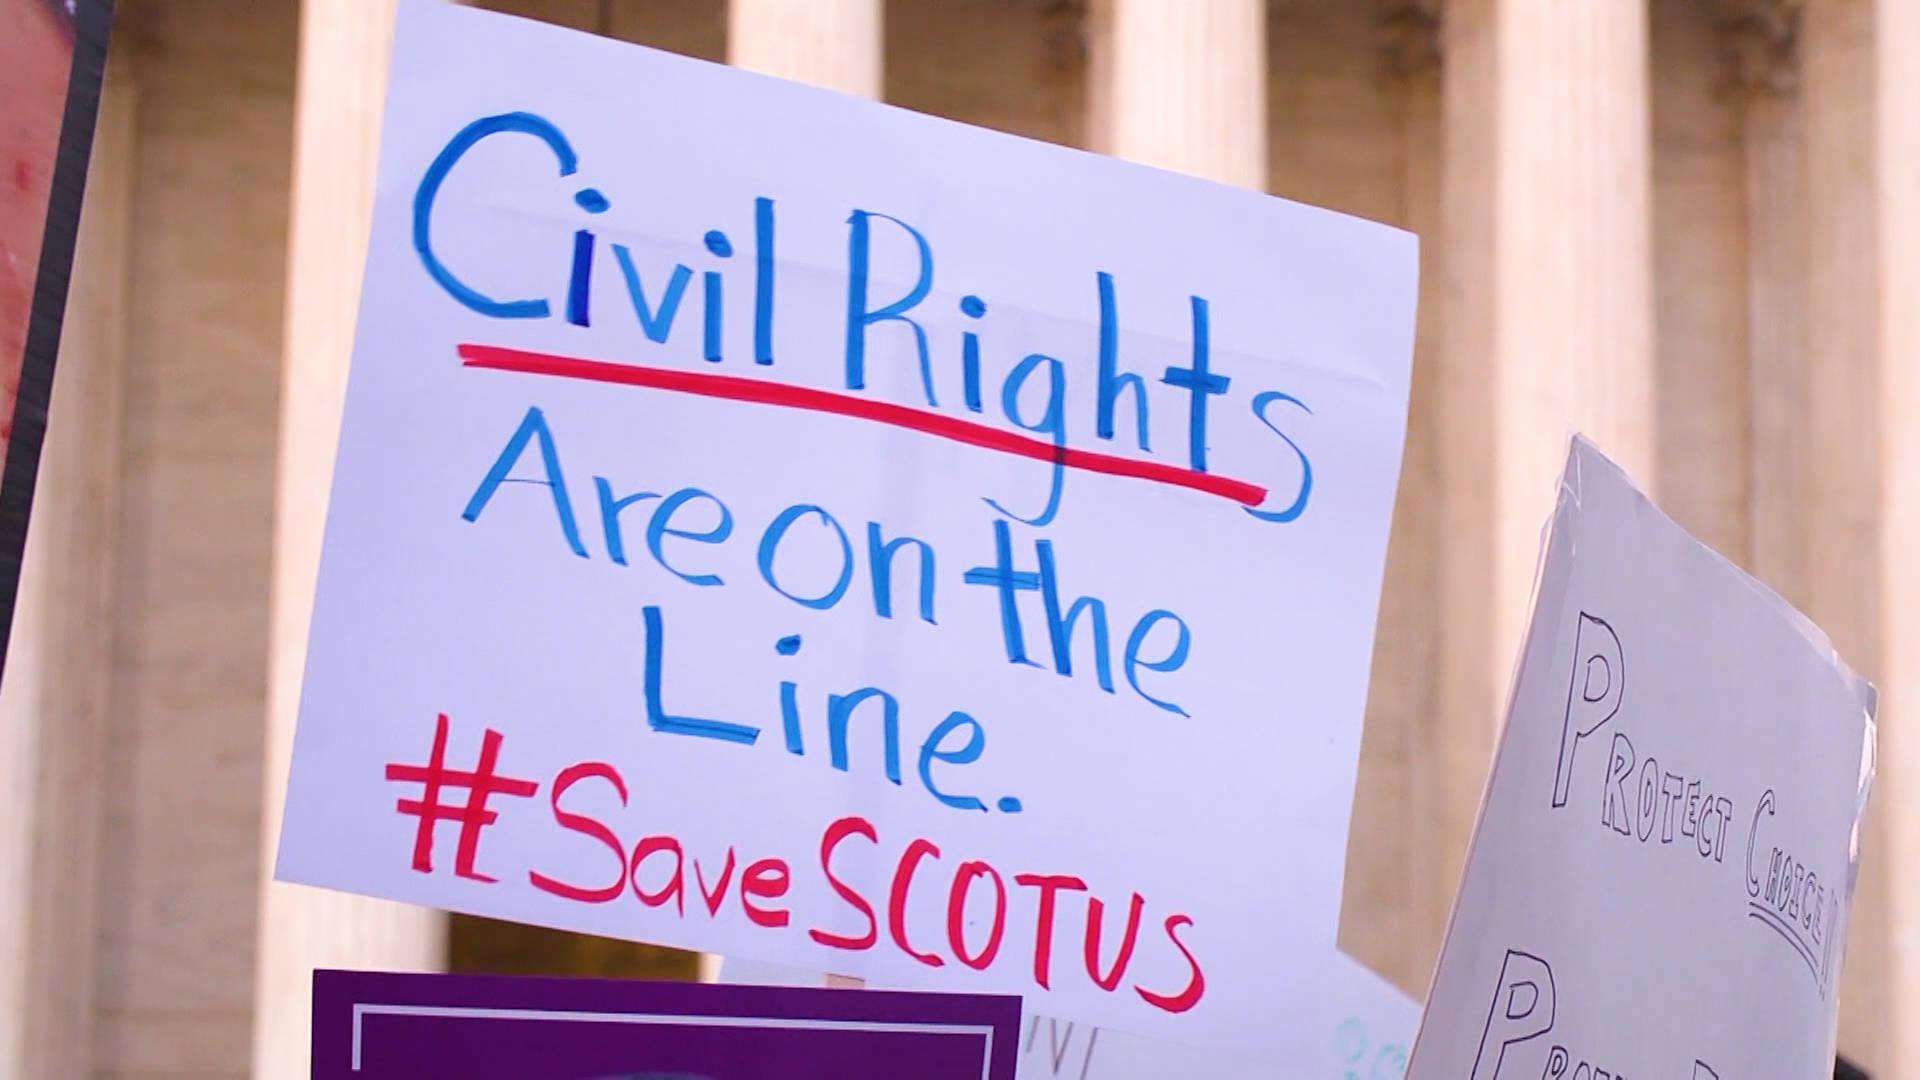 Civil Rights
Are on the
Line.
#SaveSCOTUS
PROTECT CHOICE!!